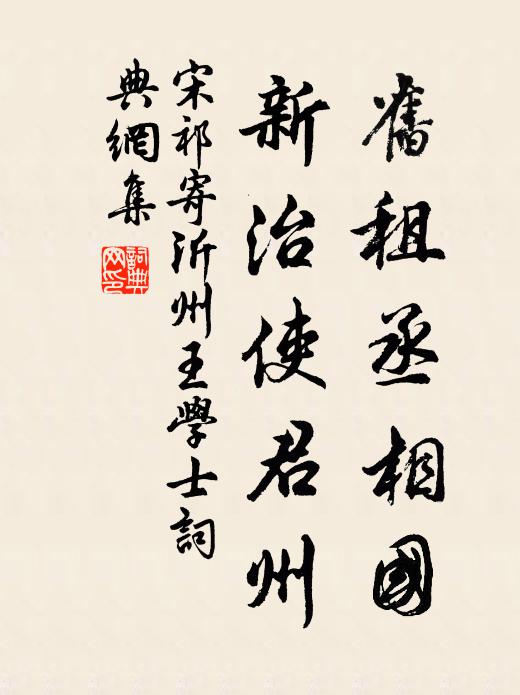 舊租丞相國
新治使君州
宋祁寄沂州王學士詞
典網集
詞典網印